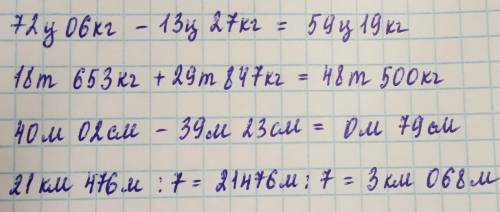 72ц 06кг - 13ц 27кг = 59ц 19кг
18т 653кг + 29т 847кг = 48т 500кг
40м 02см - 39м 23см = 0м 79см
21км 476м : 7 = 21476м : 7 = 3км 068м